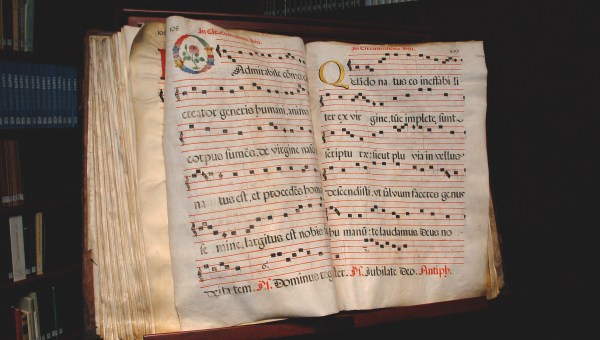 In Circuncisione
O Admirabile cōmerci
creator generis humani, anima
corpus sumēs, de virgine nas
na tus est, et procedēs hom
se mine, largitus est nobis
deita tem. Ps. Dominus reg
In Circuncisione
Quādo na tus es ineffabi li
ter ex vir gine, tūc implete sunt
scriptu re: sicut plu via in vellus
descendisti, vt saluum faceres genus
hu manū: te laudamus Deus no
ter. Ps. Jubilate Deo. Antiph.